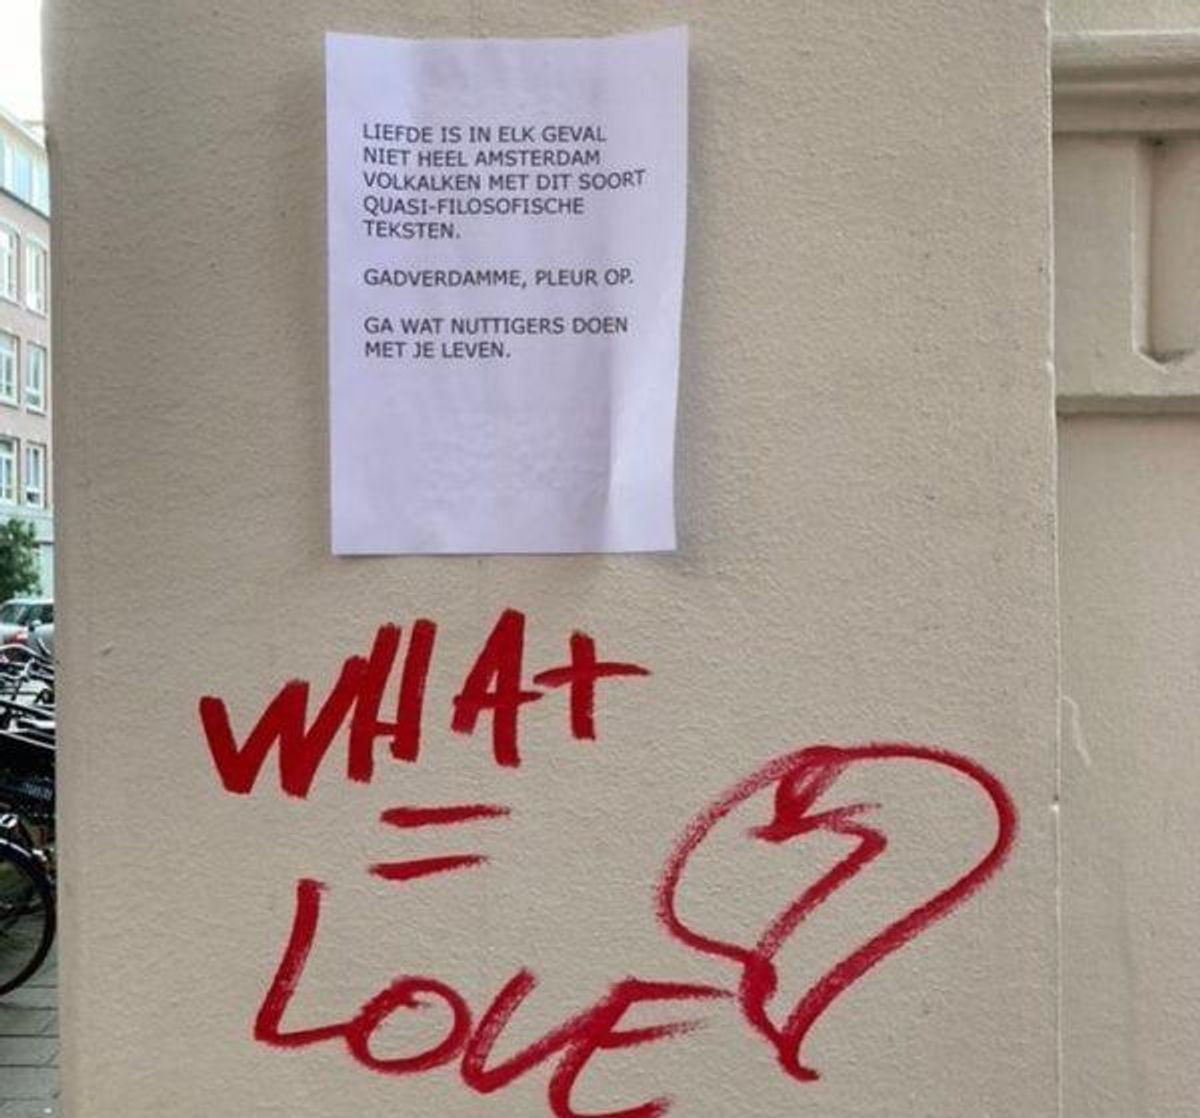 LIEFDE IS IN ELK GEVAL
NIET HEEL AMSTERDAM
VOLKALKEN MET DIT SOORT
QUASI-FILOSOFISCHE
TEKSTEN.
GADVERDAMME, PLEUR OP.
GA WAT NUTTIGERS DOEN
MET JE LEVEN.
WHAT
=
LOVE?